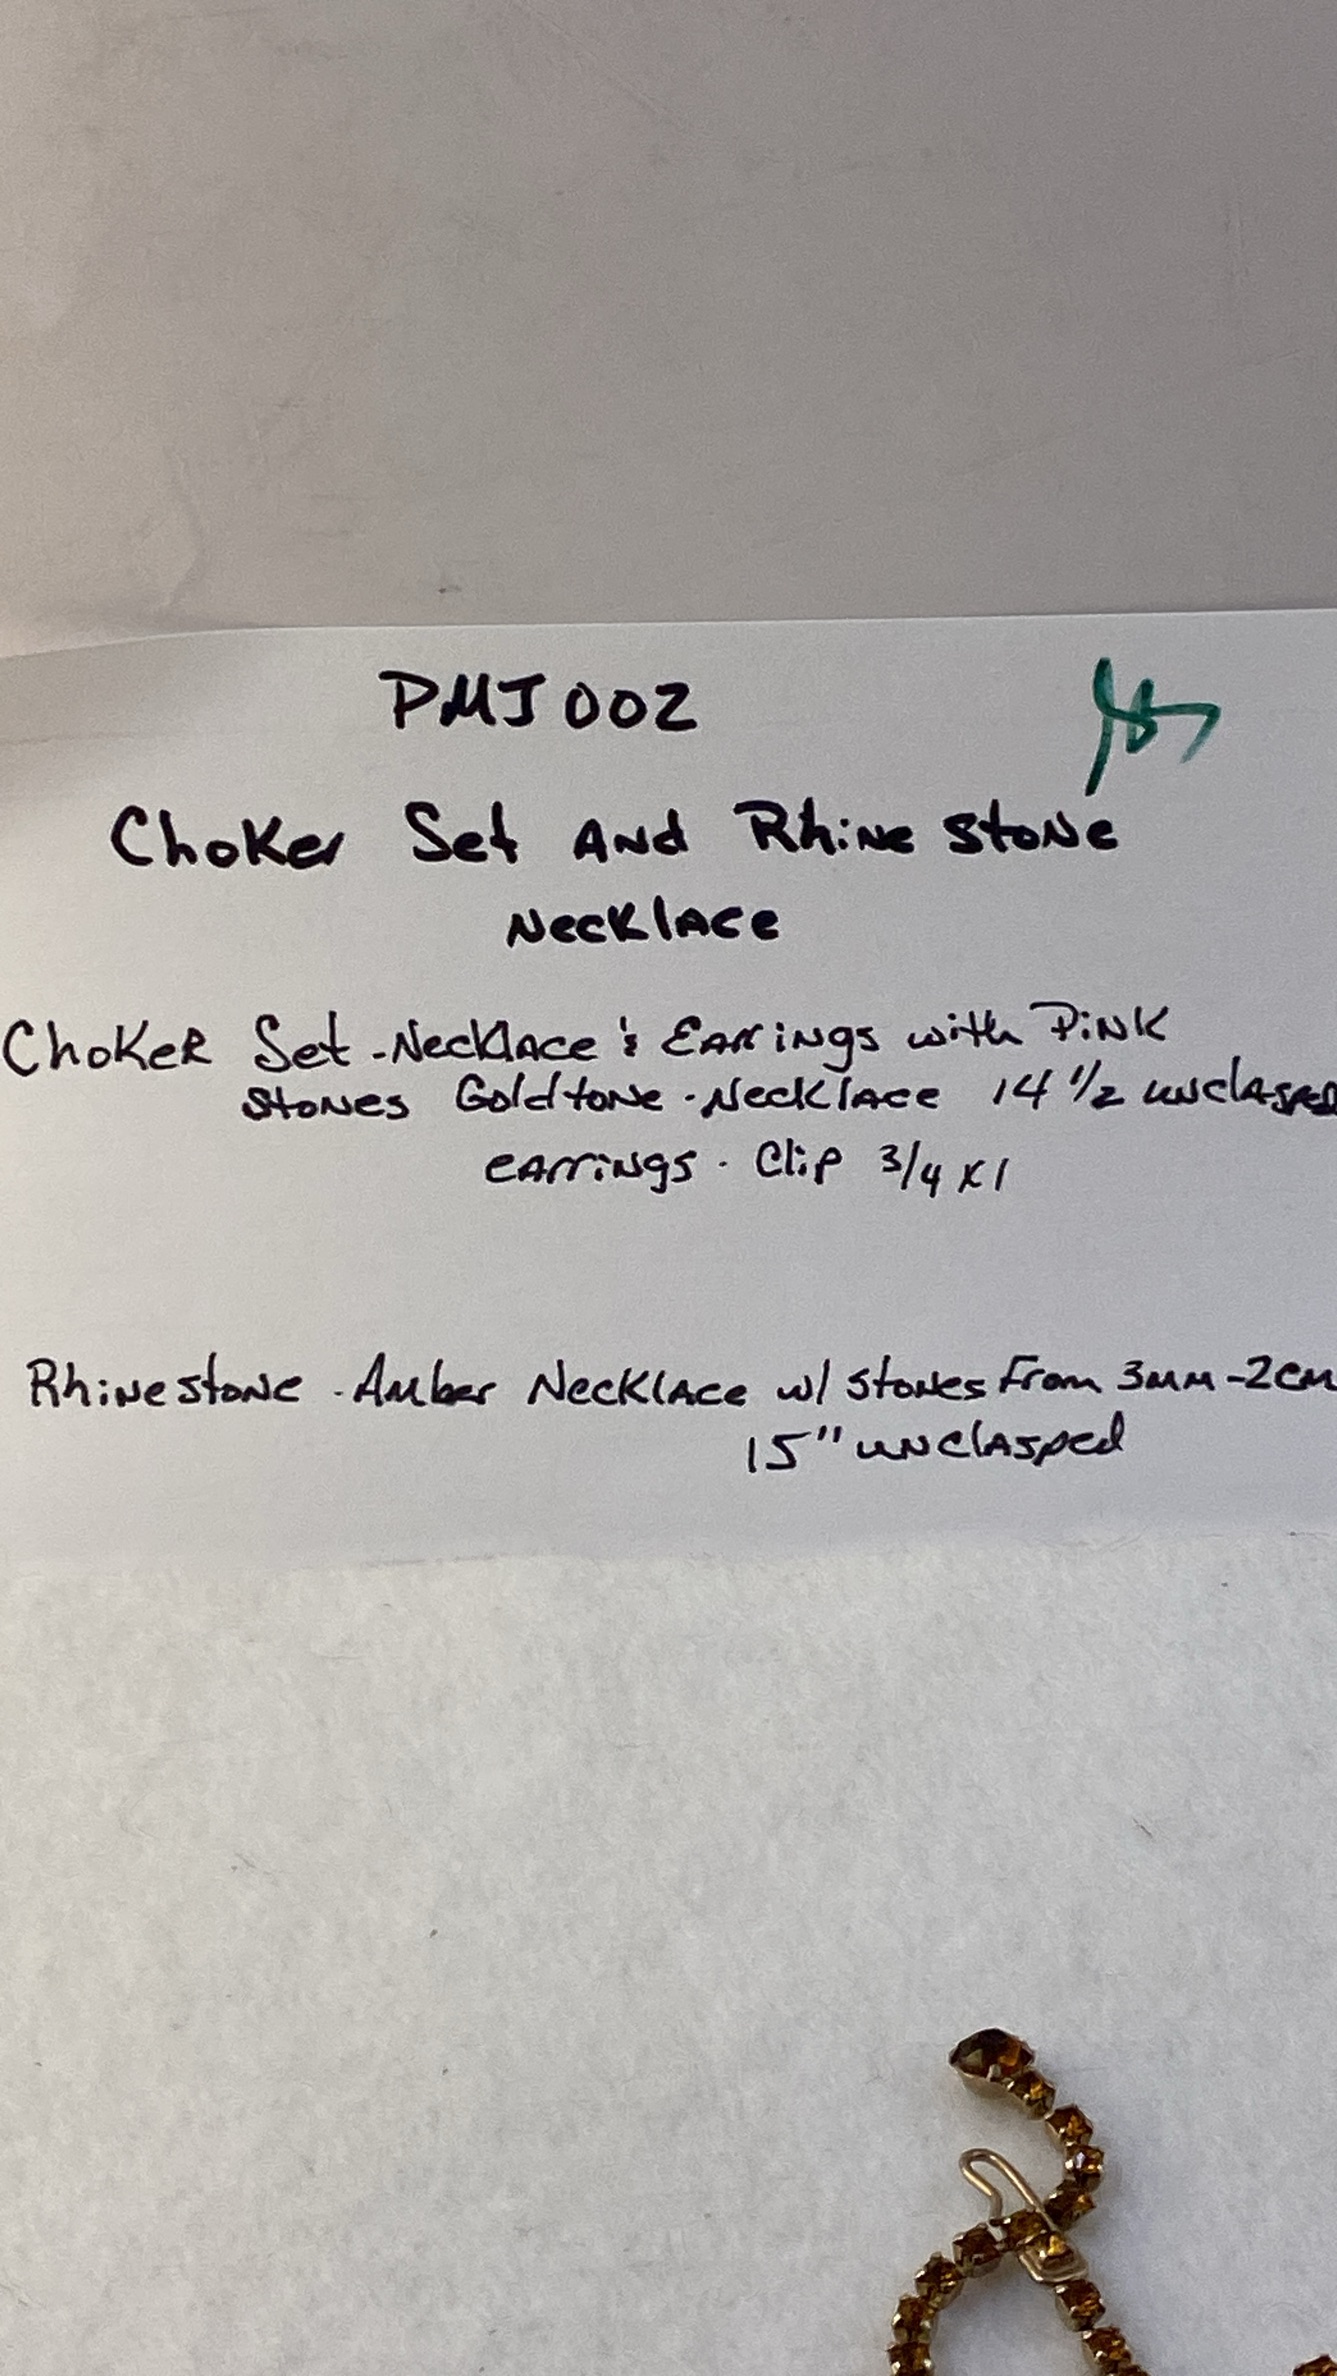 PMJ002
Choker Set And Rhine stone
Necklace
Choker Set - Necklace & Earrings with Pink
stones Goldtone - Necklace 14 1/2 unclasped
earrings - Clip 3/4 x 1
Rhinestone - Amber Necklace w/ stones From 3mm - 2cm
15" unclasped